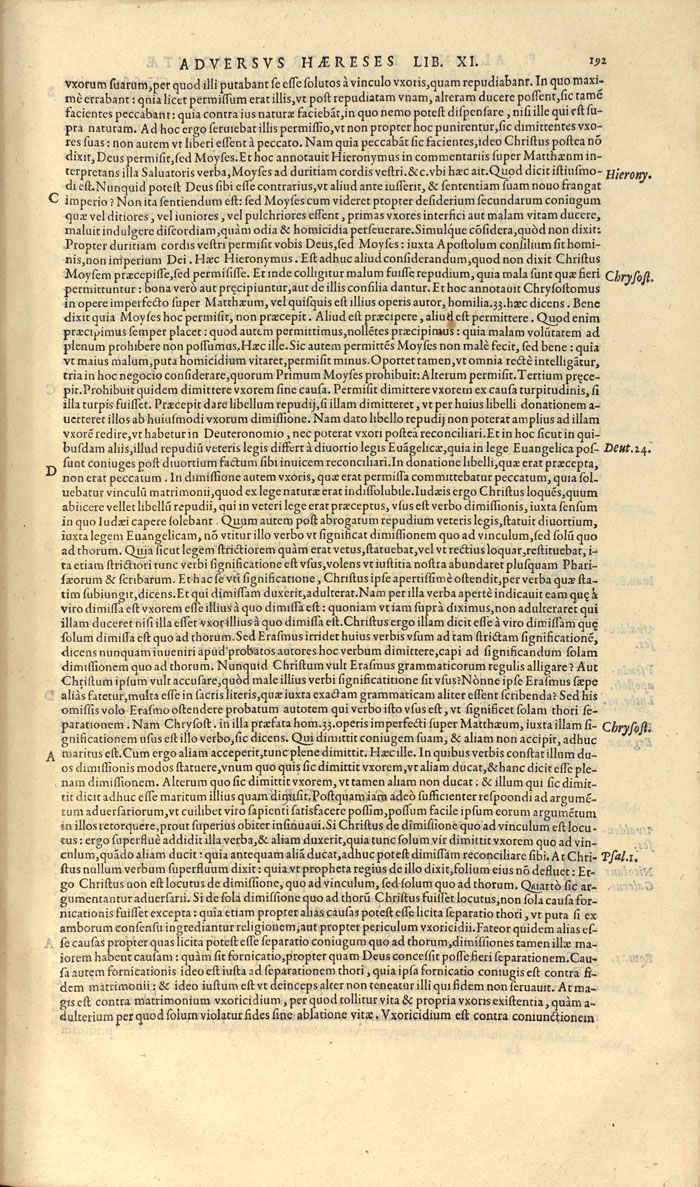 ADVERSVS HÆRESES LIB. XI. 192
vxorum suarum, per quod illi putabant se esse solutos à vinculo vxoris, quam repudiabant. In quo maxi-
mè errabant: qnia licet permissum erat illis, vt post repudiatam vnam, alteram ducere possent, sic tamē
facientes peccabant: quia contra ius naturæ faciebāt, in quo nemo potest dispensare, nisi ille qui est su-
pra naturam. Ad hoc ergo seruiebat illis permissio, vt non propter hoc punirentur, sic dimittentes vxo-
res suas: non autem vt liberi essent à peccato. Nam quia peccabāt sic facientes, ideo Christus postea nō
dixit, Deus permisit, sed Moyses. Et hoc annotauit Hieronymus in commentariis super Matthæum in-
terpretans illa Saluatoris verba, Moyses ad duritiam cordis vestri. &c. vbi hæc ait. Quod dicit istiusmo-
di est. Nunquid potest Deus sibi esse contrarius, vt aliud ante iusserit, & sententiam suam nouo frangat
Hierony.
C imperio? Non ita sentiendum est: sed Moyses cum videret propter desiderium secundarum coniugum
quæ vel ditiores, vel iuniores, vel pulchriores essent, primas vxores interfici aut malam vitam ducere,
maluit indulgere discordiam, quàm odia & homicidia perseuerare. Simulque cōsidera, quòd non dixit:
Propter duritiam cordis vestri permisit vobis Deus, sed Moyses: iuxta Apostolum consilium sit homi-
nis, non imperium Dei. Hæc Hieronymus. Est adhuc aliud considerandum, quod non dixit Christus
Moysem præcepisse, sed permisisse. Et inde colligitur malum fuisse repudium, quia mala sunt quæ fieri
permittuntur: bona verò aut pręcipiuntur, aut de illis consilia dantur. Et hoc annotauit Chrysostomus
Chrysost.
in opere imperfecto super Matthæum, vel quisquis est illius operis autor, homilia. 33. hæc dicens. Bene
dixit quia Moyses hoc permisit, non præcepit. Aliud est præcipere, aliud est permittere. Quod enim
præcipimus semper placet: quod autem permittimus, nollētes præcipimus: quia malam volūtatem ad
plenum prohibere non possumus. Hæc ille. Sic autem permittēs Moyses non malè fecit, sed bene: quia
vt maius malum, puta homicidium vitaret, permisit minus. Oportet tamen, vt omnia rectè intelligātur,
tria in hoc negocio considerare, quorum Primum Moyses prohibuit: Alterum permisit. Tertium pręce-
pit. Prohibuit quidem dimittere vxorem sine causa. Permisit dimittere vxorem ex causa turpitudinis, si
illa turpis fuisset. Præcepit dare libellum repudij, si illam dimitteret, vt per huius libelli donationem a-
uerteret illos ab huiusmodi vxorum dimissione. Nam dato libello repudij non poterat amplius ad illam
vxorē redire, vt habetur in Deuteronomio, nec poterat vxori postea reconciliari. Et in hoc sicut in qui-
busdam aliis, illud repudiū veteris legis differt à diuortio legis Euāgelicæ, quia in lege Euangelica pos-
Deut. 24.
D sunt coniuges post diuortium factum sibi inuicem reconciliari. In donatione libelli, quæ erat præcepta,
non erat peccatum. In dimissione autem vxoris, quæ erat permissa committebatur peccatum, quia sol-
uebatur vinculū matrimonii, quod ex lege naturæ erat indissolubile. Iudæis ergo Christus loquēs, quum
abiicere vellet libellū repudii, qui in veteri lege erat præceptus, vsus est verbo dimissionis, iuxta sensum
in quo Iudæi capere solebant. Quum autem post abrogatum repudium veteris legis, statuit diuortium,
iuxta legem Euangelicam, nō vtitur illo verbo vt significat dimissionem quo ad vinculum, sed solū quo
ad thorum. Quia sicut legem strictiorem quàm erat vetus, statuebat, vel vt rectius loquar, restituebat, i-
ta etiam strictiori tunc verbi significatione est vsus, volens vt iustitia nostra abundaret plusquam Phari-
sæorum & scribarum. Et hac se vti significatione, Christus ipse apertissimè ostendit, per verba quæ sta-
tim subiungit, dicens. Et qui dimissam duxerit, adulterat. Nam per illa verba apertè indicauit eam quę à
viro dimissa est vxorem esse illius à quo dimissa est: quoniam vt iam suprà diximus, non adulteraret qui
illam duceret nisi illa esset vxor illius à quo dimissa est. Christus ergo illam dicit esse à viro dimissam quę
solum dimissa est quo ad thorum. Sed Erasmus irridet huius verbis vsum ad tam strictam significationē,
dicens nunquam inueniri apud probatos autores hoc verbum dimittere, capi ad significandum solam
dimissionem quo ad thorum. Nunquid Christum vult Erasmus grammaticorum regulis alligare? Aut
Christum ipsum vult accusare, quòd male illius verbi significatitione sit vsus? Nónne ipse Erasmus sæpe
aliàs fatetur, multa esse in sacris literis, quæ iuxta exactam grammaticam aliter essent scribenda? Sed his
omissis volo Erasmo ostendere probatum autorem qui verbo isto vsus est, vt significet solam thori se-
parationem. Nam Chrysost. in illa præfata hom. 33. operis imperfecti super Matthæum, iuxta illam si-
Chrysost.
gnificationem vsus est illo verbo, sic dicens. Qui dimittit coniugem suam, & aliam non accipit, adhuc
A maritus est. Cum ergo aliam acceperit, tunc plene dimittit. Hæc ille. In quibus verbis constat illum du-
os dimissionis modos statuere, vnum quo quis sic dimittit vxorem, vt aliam ducat, & hanc dicit esse ple-
nam dimissionem. Alterum quo sic dimittit vxorem, vt tamen aliam non ducat: & illum qui sic dimit-
tit dicit adhuc esse maritum illius quam dimisit. Postquam iam adeò sufficienter respoondi ad argumē-
tum aduersariorum, vt cuilibet viro sapienti satisfacere possim, possum facile ipsum eorum argumētum
in illos retorquere, prout superius obiter insinuaui. Si Christus de dimissione quo ad vinculum est locu-
tus: ergo superfluè addidit illa verba, & aliam duxerit, quia tunc solum vir dimittit vxorem quo ad vin-
culum, quādo aliam ducit: quia antequam aliā ducat, adhuc potest dimissam reconciliare sibi. At Chri-
Psal. 1.
stus nullum verbum superfluum dixit: quia vt propheta regius de illo dixit, folium eius nō defluet: Er-
go Christus non est locutus de dimissione, quo ad vinculum, sed solum quo ad thorum. Quartò sic ar-
gumentantur aduersarii. Si de sola dimissione quo ad thorū Christus fuisset locutus, non sola causa for-
nicationis fuisset excepta: quia etiam propter alias causas potest esse licita separatio thori, vt puta si ex
amborum consensu ingrediantur religionem, aut propter periculum vxoricidii. Fateor quidem alias es-
se causas propter quas licita potest esse separatio coniugum quo ad thorum, dimissiones tamen illæ ma-
iorem habent causam: quàm sit fornicatio, propter quam Deus concessit posse fieri separationem. Cau-
sa autem fornicationis ideo est iusta ad separationem thori, quia ipsa fornicatio coniugis est contra fi-
dem matrimonii: & ideo iustum est vt deinceps alter non teneatur illi qui fidem non seruauit. At ma-
gis est contra matrimonium vxoricidium, per quod tollitur vita & propria vxoris existentia, quàm a-
dulterium per quod solum violatur fides sine ablatione vitæ. Vxoricidium est contra coniunctionem